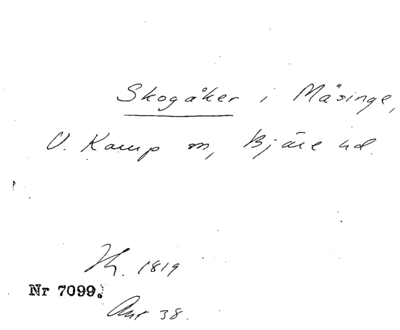 Skogåker i Mäsinge,
V. Karup sn, Bjäre hd.
Th. 1819
Nr 7099.
38.